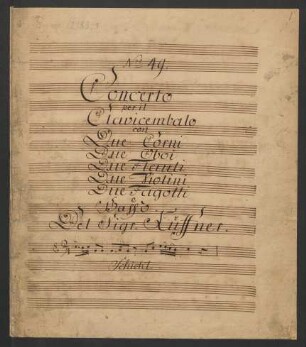 No 49.
Concerto
per il
Clavicembalo
con
Due Corni
Due Oboi
Due Flauti
Due Violini
Due Fagotti
e
Basso
Del Sigr. Küffner.
Schacht